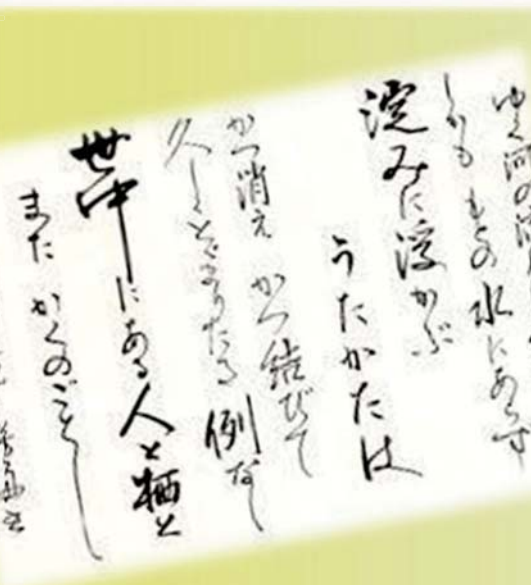 ゆく河の流
しかも もとの水にあらず
淀みに浮かぶ
うたかたは
かつ消え かつ結びて
久しくとどまりたる 例なし
世中にある人と栖と
また かくのごとし